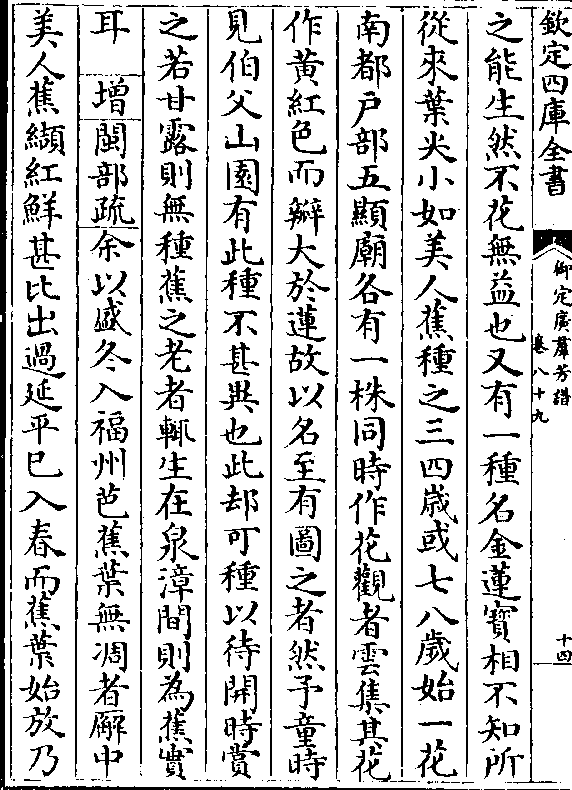 欽定四庫全書
御定廣羣芳譜
卷八十九
十四
之能生然不花無益也又有一種名金蓮寶相不知所
從來葉尖小如美人蕉種之三四歲或七八歲始一花
南都戶部五顯廟各有一株同時作花觀者雲集其花
作黃紅色而瓣大於蓮故以名至有圖之者然予童時
見伯父山園有此種不甚異也此却可種以待開時賞
之若甘露則無種蕉之老者輒生在泉漳間則為蕉實
耳 增閩部疏余以盛冬入福州芭蕉葉無凋者廨中
美人蕉纈紅鮮甚比出過延平已入春而蕉葉始放乃